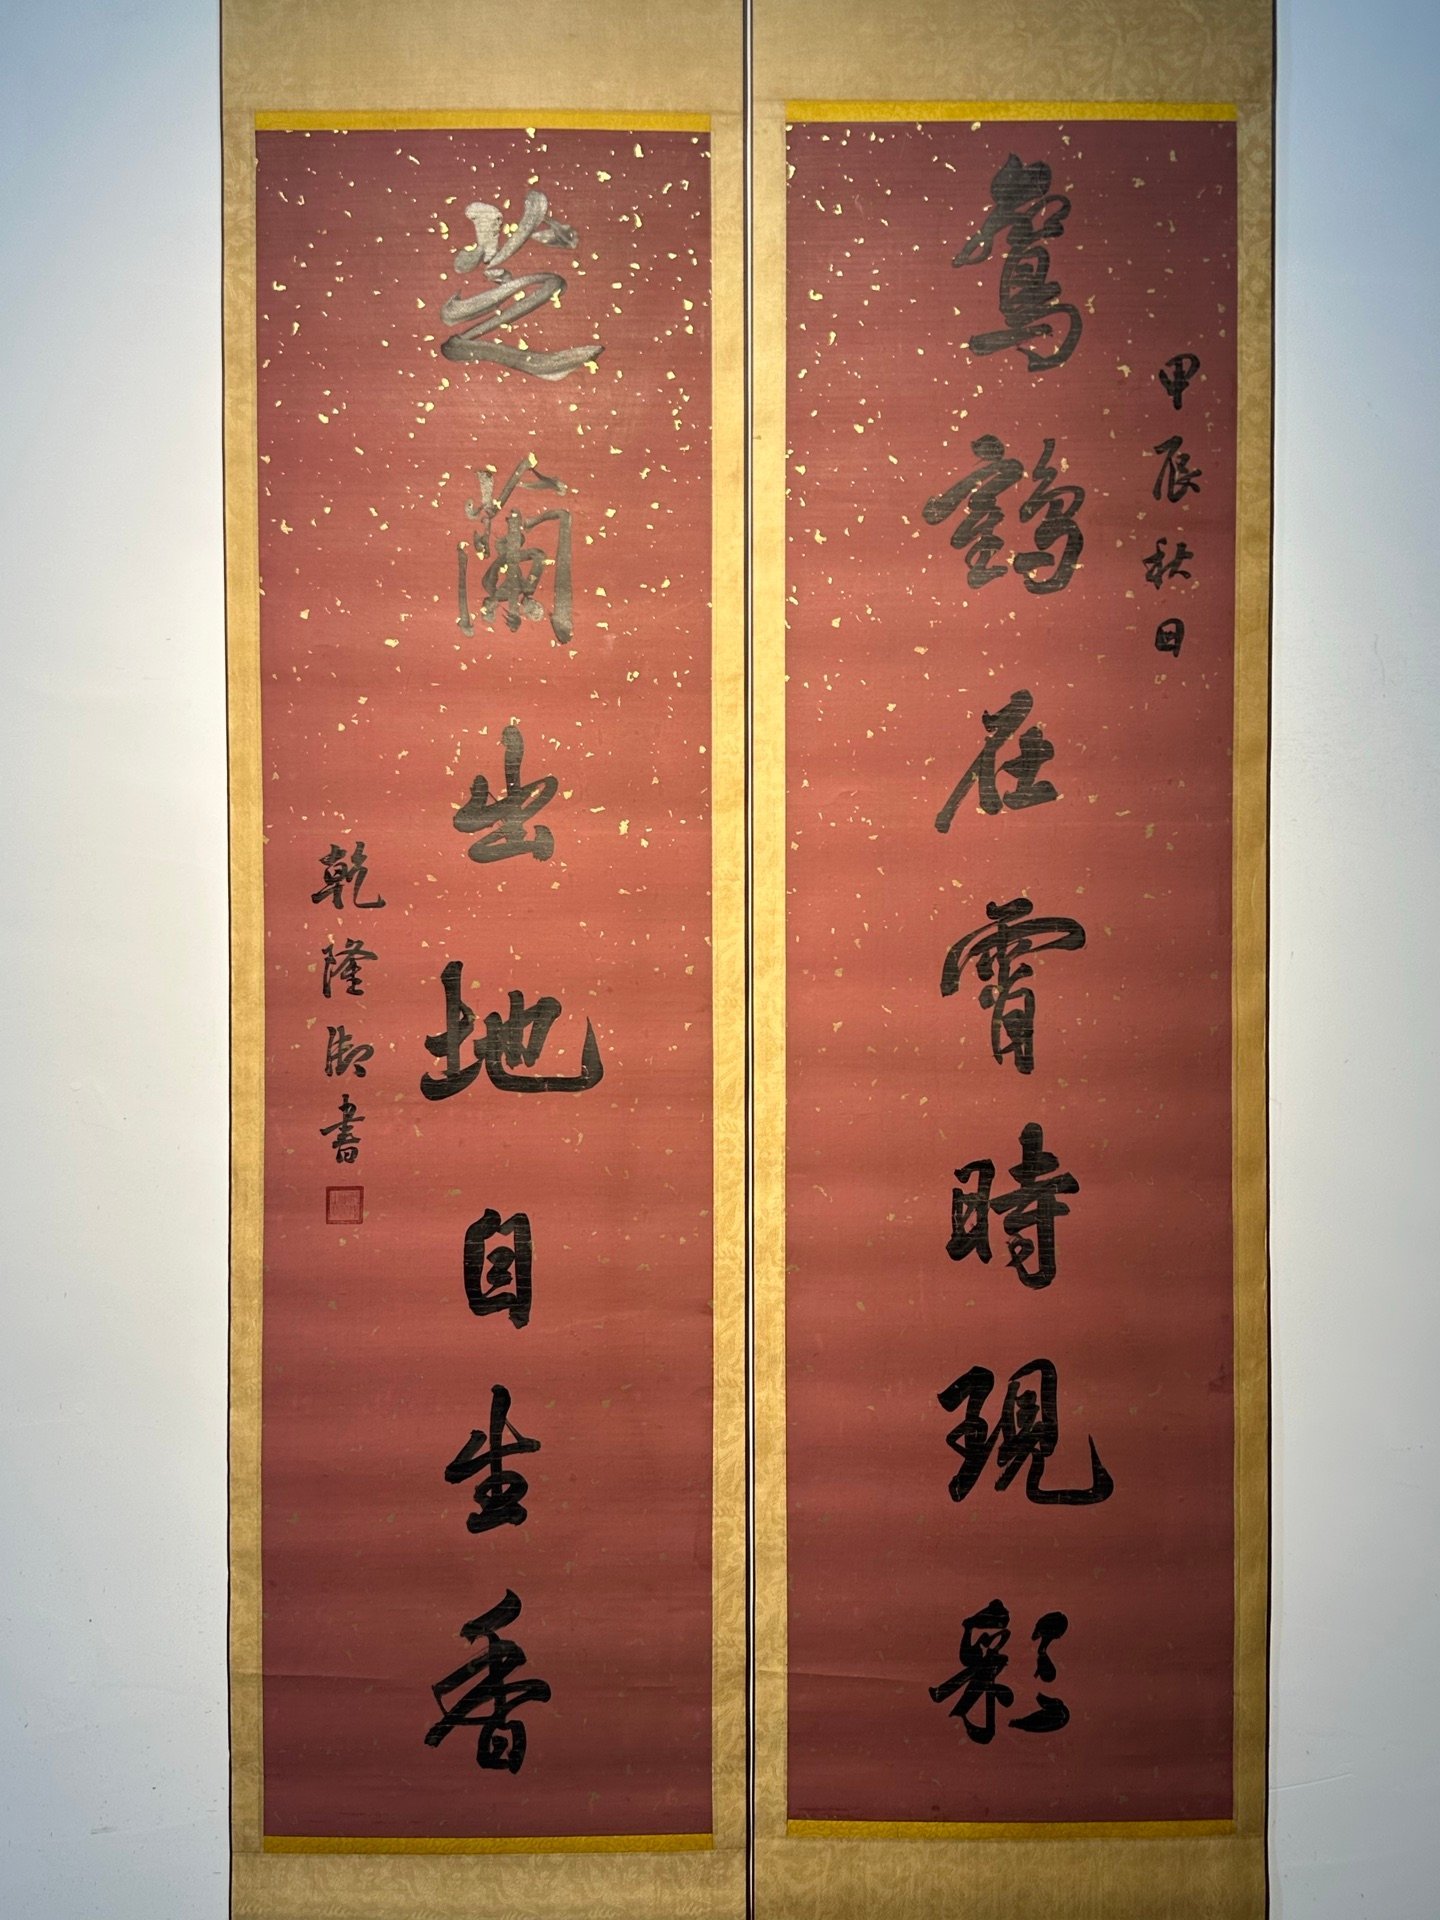 甲辰秋日
鸞鶴在霄時現彩
芝蘭出地自生香
乾隆御書